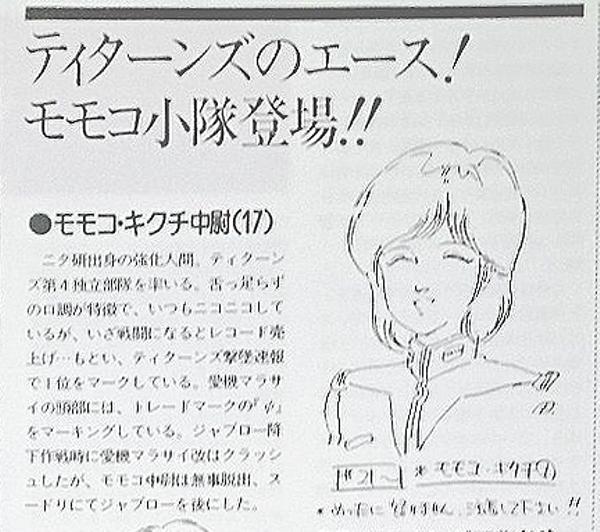 ティターンズのエース!
モモコ小隊登場!!
●モモコ・キクチ中尉(17)
ニタ研出身の強化人間。ティターン
ズ第4独立部隊を率いる。舌っ足らず
の口調が特徴で、いつもニコニコして
いるが、いざ戦闘になるとレコード売
上げ…もとい、ティターンズ撃墜速報
で1位をマークしている。愛機マラサ
イの頭部には、トレードマークの『φ』
をマーキングしている。ジャブロー降
下作戦時に愛機マラサイ改はクラッシ
ュしたが、モモコ中尉は無事脱出、ス
ードリにてジャブローを後にした。
* モモコ・キクチ